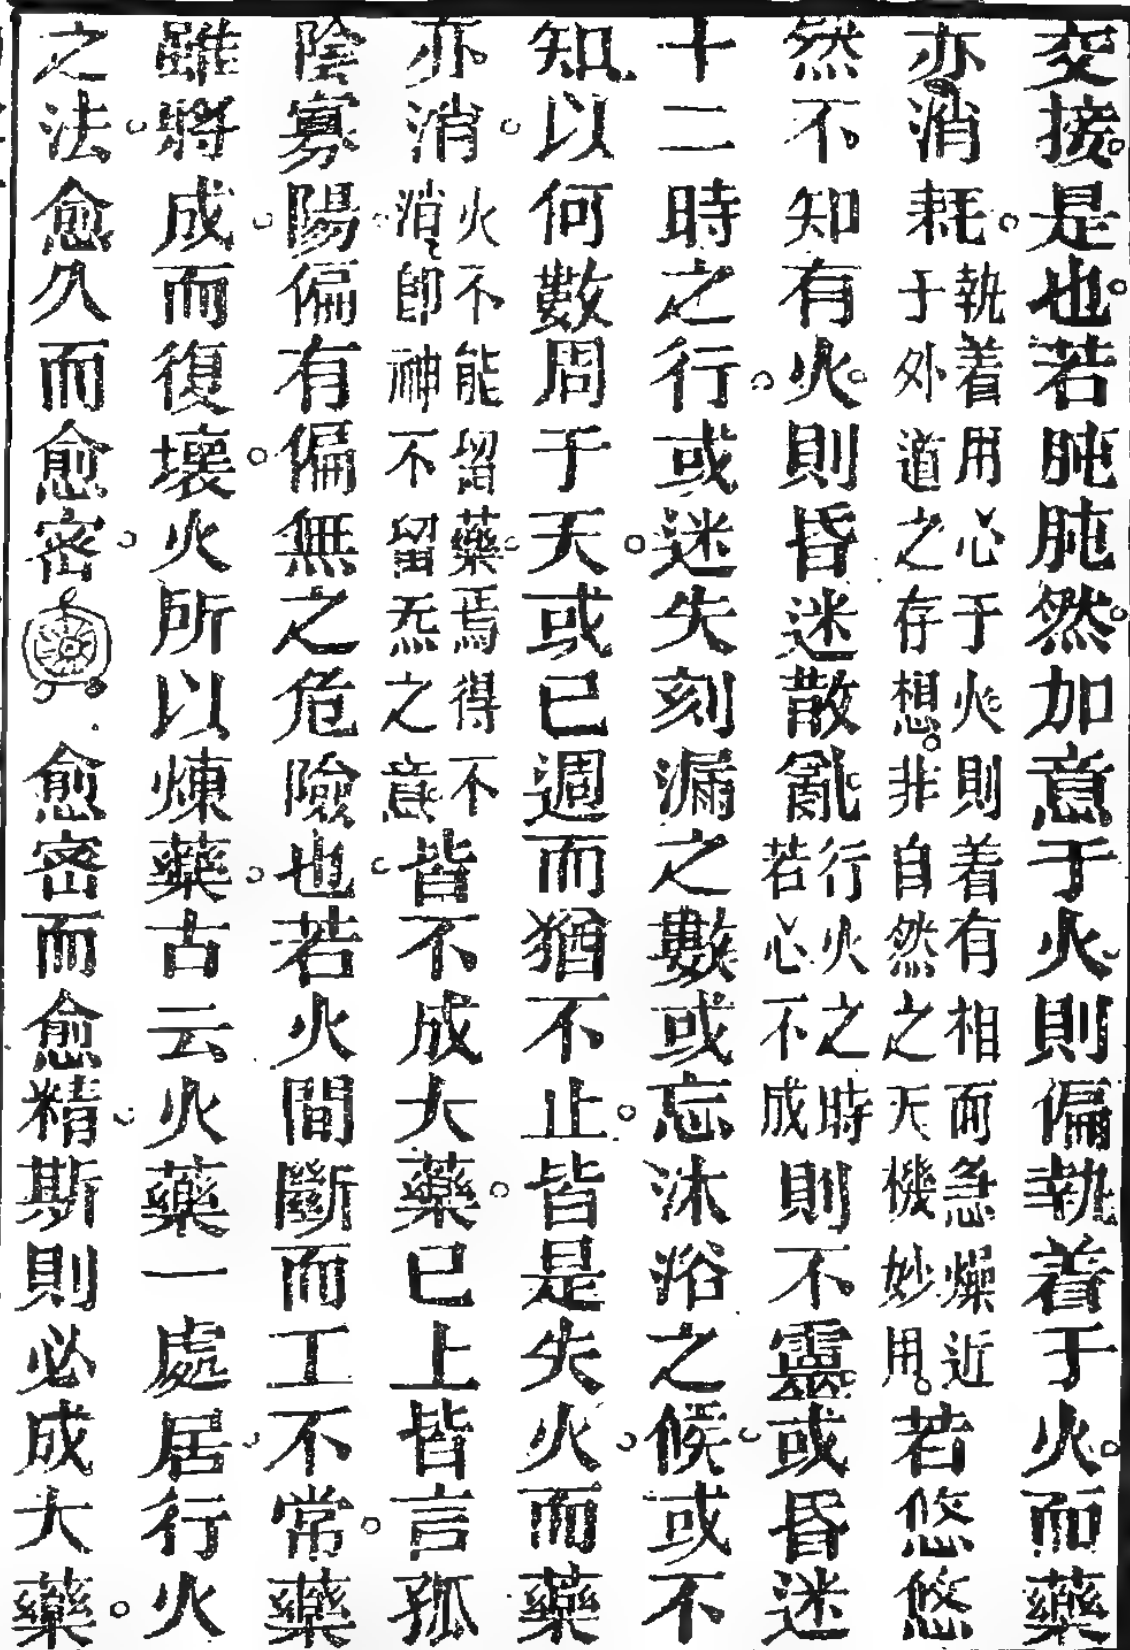 交接是也若肫肫然加意于火則偏執着于火而藥
亦消耗執着用心于火則着有相而急燥近于外道之存想非自然之天機妙用若悠悠
然不知有火則昏迷散亂行火之時若心不成則不靈或昏迷
十二時之行或迷失刻漏之數或忘沐浴之候或不
知以何數周于天或已週而猶不止皆是失火而藥
亦消火不能留藥焉得不消消即神不留炁之意皆不成大藥已上皆言孤
陰寡陽偏有偏無之危險也若火間斷而工不常藥
雖將成而復壞火所以煉藥古云火藥一處居行火
之法愈久而愈密愈密而愈精斯則必成大藥